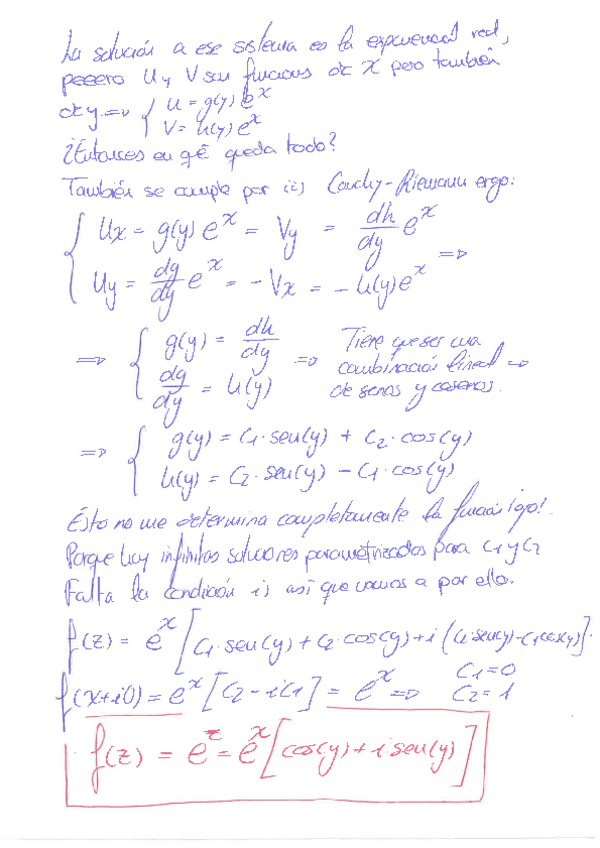 La solución a ese sistema es la exponencial real,
peeero U y V son funciones de x pero también
de y => { U = g(y) e^x
V = h(y) e^x
¿Entonces en qé queda todo?
También se cumple por ii) Cauchy-Riemann ergo:
{ Ux = g(y) e^x = Vy = dh/dy e^x
Uy = dg/dy e^x = - Vx = - h(y) e^x =>
=> { g(y) = dh/dy
dg/dy = h(y) => Tiene que ser una
combinación lineal →
de senos y cosenos.
=> { g(y) = C1·sen(y) + C2·cos(y)
h(y) = C2·sen(y) - C1·cos(y)
Ésto no me determina completamente la función
Porque hay infinitas soluciones parametrizadas para C1 y C2
Falta la condición i) así que vamos a por ello.
f(z) = e^x [C1·sen(y) + C2·cos(y) + i (C2 sen(y) - C1 cos(y))].
f(x+i0) = e^x [C2 - iC1] = e^x => C1=0
C2=1
f(z) = e^z = e^x [cos(y) + i sen(y)]